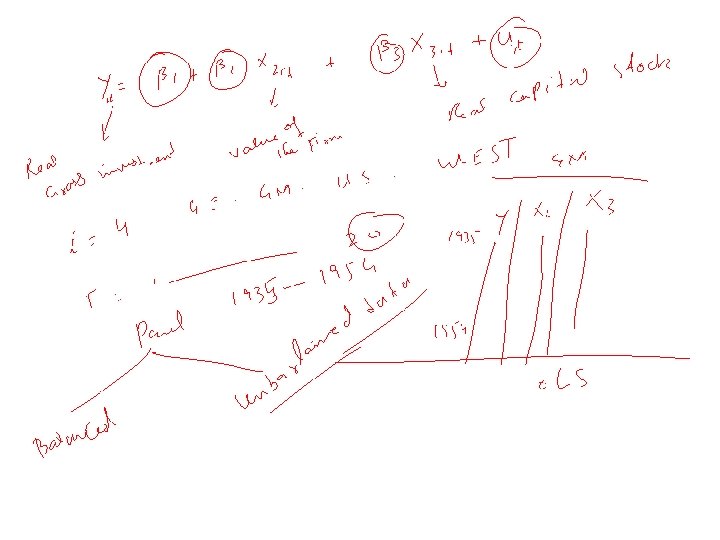 Yit = β1 + β1 X2it + β3 X3it + Uit
Real Gross investment
value of the Firm
Real capital stock
i = 4
GE. GM. US. WEST
T = 1
20
1935 -- 1954
Panel
Balanced
Unbarlainced data
Y X2 X3
1935
1954
OLS